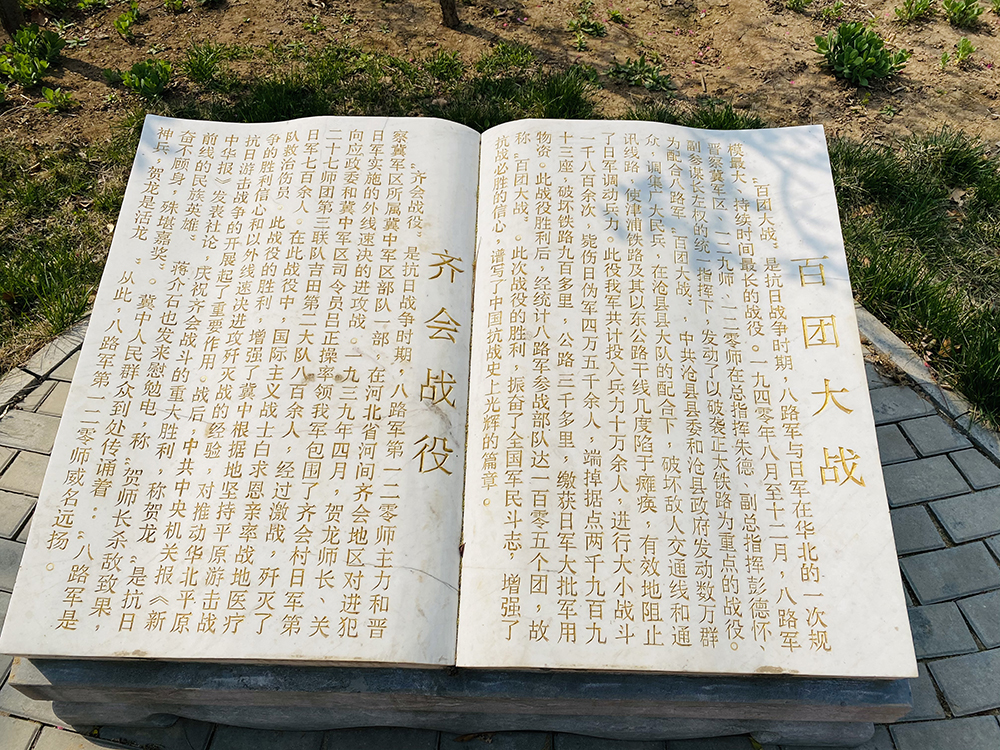 百团大战
“百团大战”是抗日战争时期，八路军与日军在华北的一次规
模最大、持续时间最长的战役。一九四零年八月至十二月，八路军
晋察冀军区、一二九师、一二零师在总指挥朱德、副总指挥彭德怀、
副参谋长左权的统一指挥下，发动了以破袭正太铁路为重点的战役。
为配合八路军“百团大战”，中共沧县县委和沧县政府发动数万群
众，调集广大民兵，在沧县县大队的配合下，破坏敌人交通线和通
讯线路，使津浦铁路及其以东公路干线几度陷于瘫痪，有效地阻止
了日军调动兵力。此役我军共计投入兵力十万余人，进行大小战斗
一千八百余次，毙伤日伪军四万五千余人，端掉据点两千九百九
十三座，破坏铁路九百多里，公路三千多里，缴获日军大批军用
物资。此战役胜利后，经统计八路军参战部队达一百零五个团，故
称“百团大战”。此次战役的胜利，振奋了全国军民斗志，增强了
抗战必胜的信心，谱写了中国抗战史上光辉的篇章。
齐会战役
“齐会战役”是抗日战争时期，八路军第一二零师主力和晋
察冀军区所属冀中军区部队一部，在河北省河间齐会地区对进犯
日军实施的外线速决的进攻战。一九三九年四月，贺龙师长、关
向应政委和冀中军区司令员吕正操率领我军包围了齐会村日军第
二十七师团第三联队吉田第二大队八百余人，经过激战，歼灭了
日军七百余人。在此战役中，国际主义战士白求恩亲率战地医疗
队救治伤员。此战役的胜利，增强了冀中根据地坚持平原游击战
争的胜利信心和以外线速决进攻歼灭战的经验，对推动华北平原
抗日游击战争的开展起了重要作用。战后，中共中央机关报《新
中华报》发表社论，庆祝齐会战斗的重大胜利，称贺龙“是抗日
前线的民族英雄”。蒋介石也发来慰勉电，称“贺师长杀敌致果，
奋不顾身，殊堪嘉奖”。冀中人民群众到处传诵着：“八路军是
神兵，贺龙是活龙”。从此，八路军第一二零师威名远扬。